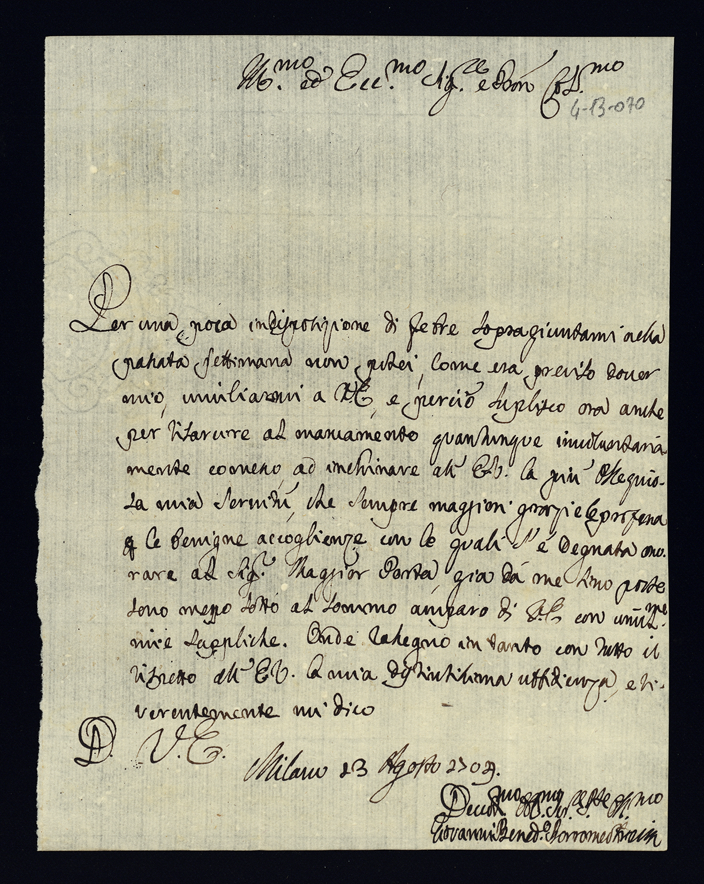 Ill.mo ed Ecc.mo Sig.re e Pron Col.mo
4-13-070
Per una poca indispositione di febre sopragiuntami nella
passata settimana non potei, come era preciso dover
mio, umiliarmi a VE, e perciò suplisco ora anche
per litarure al mancamento quantunque involontaria-
mente comesso, ad inchinare all' E.V. la più ossequio-
sa mia servitù, che sempre maggiori grazie le professa
le benigne accoglienze con le quali s' è degnata ono-
rare al Sig.r Maggior Porta, già da me sino
sono messo sotto al sommo amparo di V.E. con umil.me
mie suppliche. Onde rassegno in tanto con tutto il
rispetto all' E.V. la mia ossequientissima ubbidienza, e ri-
verentemente mi dico
D. V.E.
Milano 13 Agosto
Giovanni Bened.o Borromeo